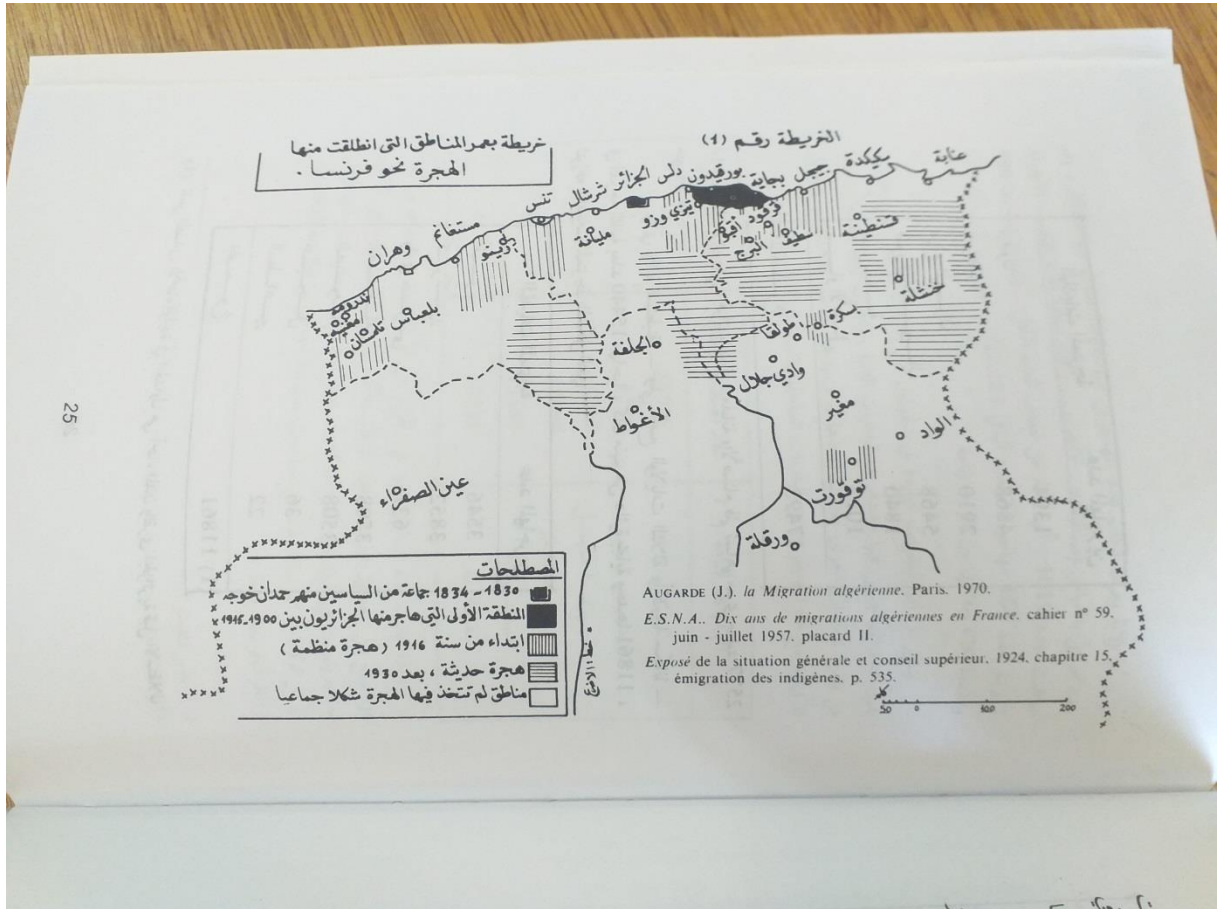 الخريطة رقم (1)
خريطة بعمر المناطق التى انطلقت منها
الهجرة نحو فرنسا .
عنابة
سكيكدة
جيجل
بجاية
بورقيدون
دلس
الجزائر
شرشال
تنس
مستغانم
وهران
قسنطينة
سطيف
قرقور
اقبو
البرج
تيزي وزو
مليانة
خنشلة
بلعباس
تلمسان
بسكرة
طولقا
الجلفة
وادي جلال
مغير
الأغواط
الواد
توقورت
عين الصفراء
ورقلة
25
المصطلحات
1830 - 1834 جماعة من السياسين منهم حمدان خوجه
المنطقة الأولى التى هاجر منها الجزائريون بين 1900-1915
ابتداء من سنة 1916 ( هجرة منظمة )
هجرة حديثة ، بعد 1930
مناطق لم تتخذ فيها الهجرة شكلا جماعيا
AUGARDE (J.). la Migration algérienne. Paris. 1970.
E.S.N.A.. Dix ans de migrations algériennes en France. cahier n° 59.
juin - juillet 1957. placard II.
Exposé de la situation générale et conseil supérieur. 1924. chapitre 15.
émigration des indigènes. p. 535.
50 0 100 200